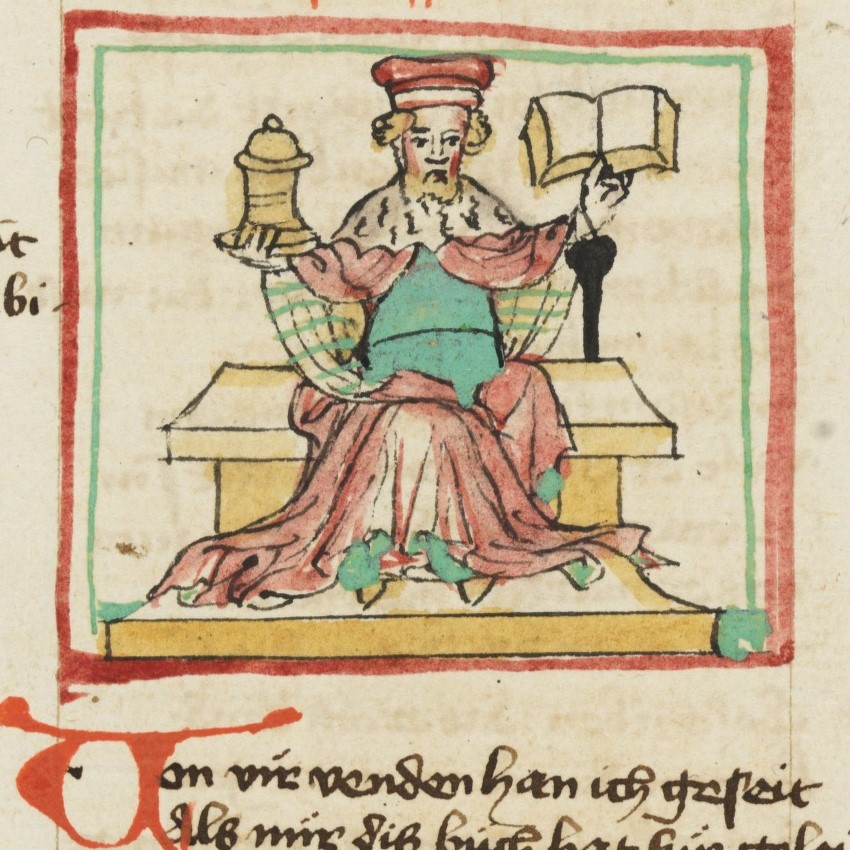 bi
Von vir venden han ich geseit
Als mir diß buch hat für